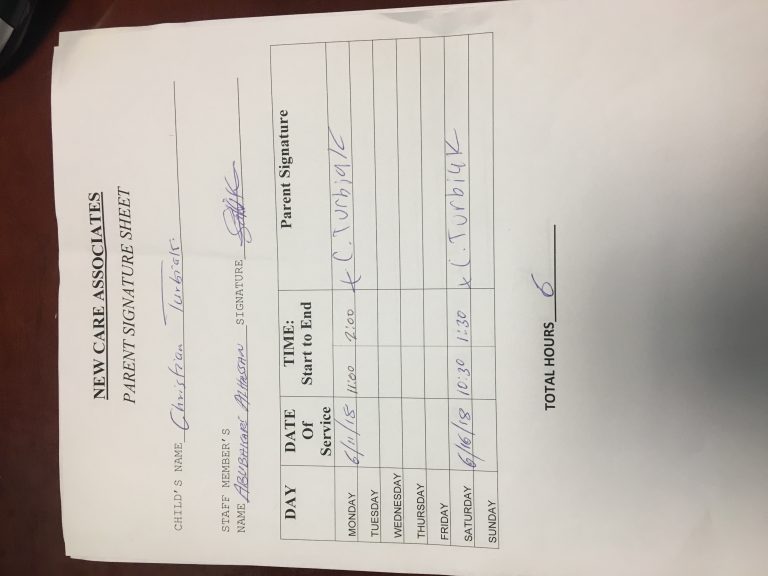 NEW CARE ASSOCIATES
PARENT SIGNATURE SHEET
CHILD'S NAME Christian Turbiak.
STAFF MEMBER'S
NAME ABUBAKARI ALHASSAN SIGNATURE
DAY DATE Of Service TIME: Start to End Parent Signature
MONDAY 6/11/18 11:00 2:00 x C. Turbiak
TUESDAY
WEDNESDAY
THURSDAY
FRIDAY
SATURDAY 6/16/18 10:30 1:30 x C. Turbiak
SUNDAY
TOTAL HOURS 6